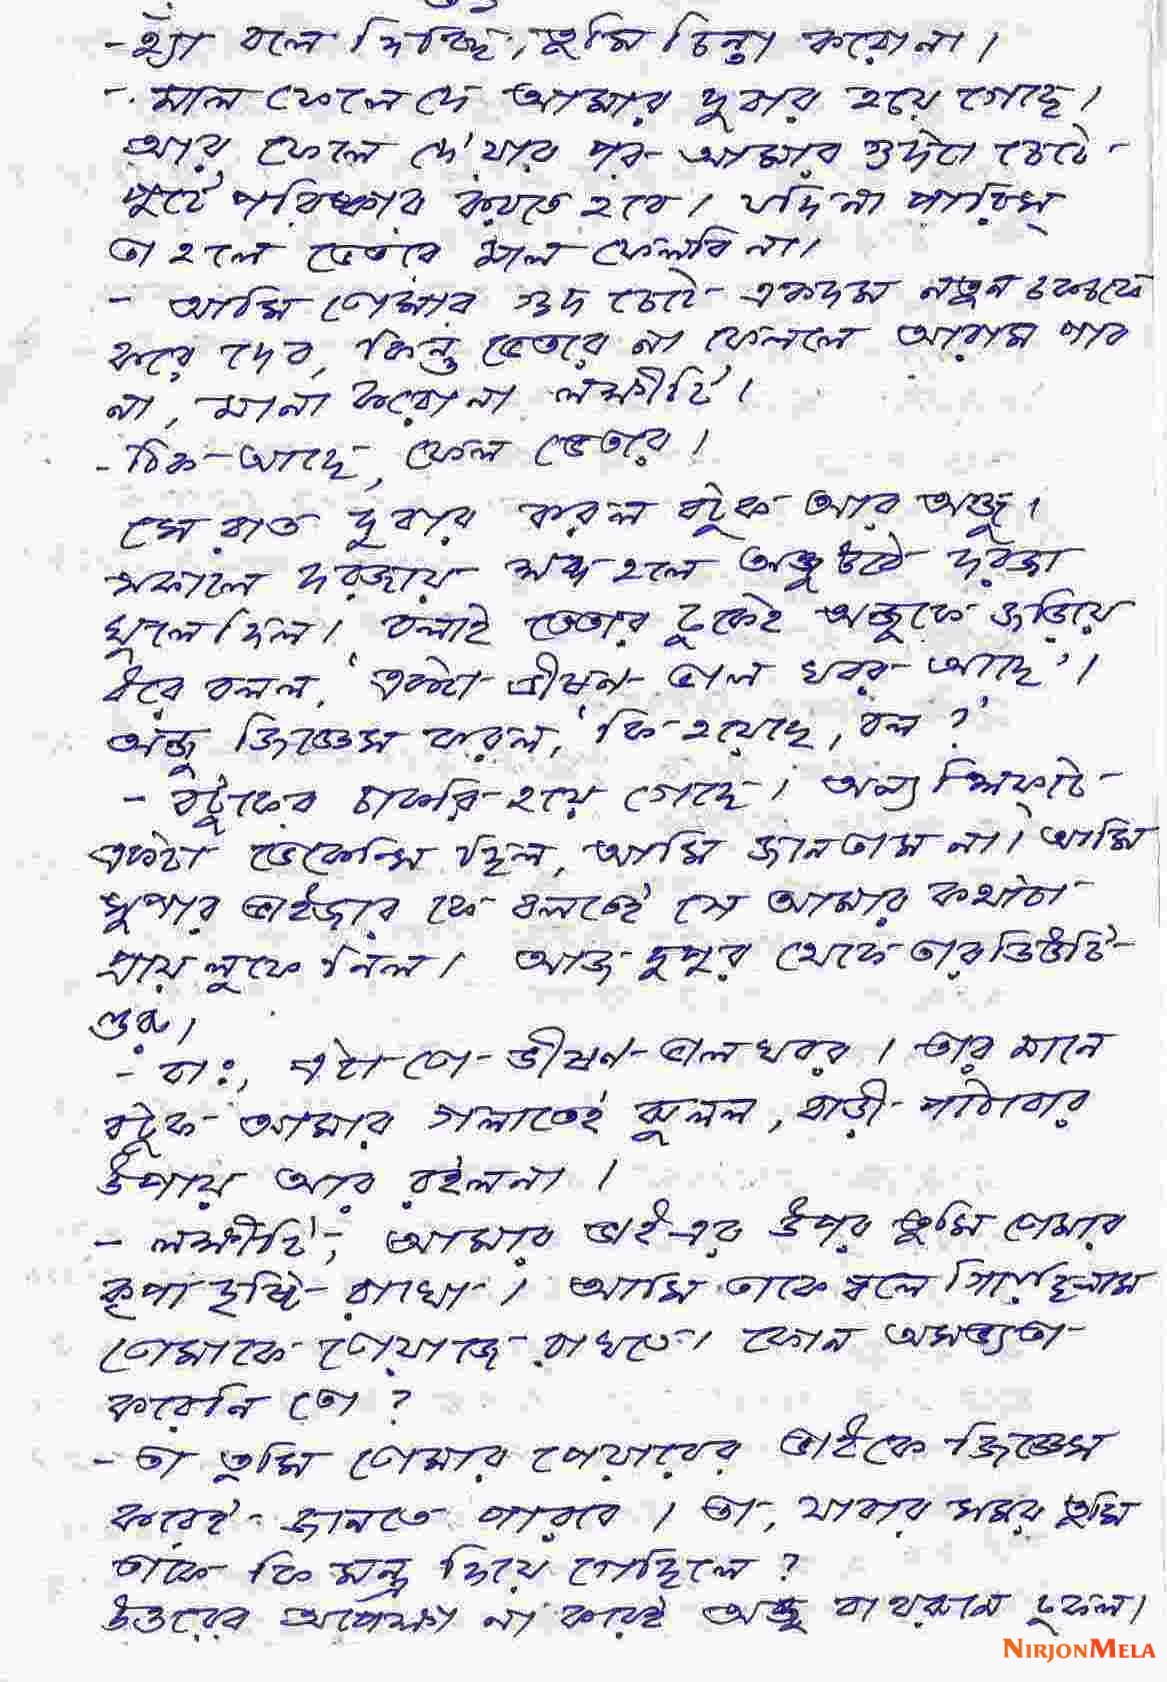 - হ্যাঁ বলে দিচ্ছি, তুমি চিন্তা করোনা।
- মাল ফেলেদে আমার দুবার হয়ে গেছে।
আর ফেলে দে'যার পর আমার গুদটা চেটে-
পুটে পরিষ্কার করতে হবে। যদি না পারিস্
তা হলে ভেতরে মাল ফেলবি না।
- আমি তোমার গুদ চেটে একদম নতুন চকচকে
করে দেব, কিন্তু ভেতরে না ফেললে আরাম পাব
না, মানা করোনা লক্ষীটি।
- ঠিক আছে, ফেল ভেতরে।
সে রাত দুবার করল বটুক আর অঞ্জু।
সকালে দরজায় শব্দ হলে অঞ্জু উঠে দরজা
খুলে দিল। বলাই ভেতরে ঢুকেই অঞ্জুকে জড়িয়ে
ধরে বলল, 'একটা ভীষণ ভাল খবর আছে'।
অঞ্জু জিজ্ঞেস করল, 'কি হয়েছে, বল ?'
- বটুকের চাকরি হয়ে গেছে। অন্য শিফ্টে
একটা ভেকেন্সি ছিল, আমি জানতাম না। আমি
সুপার ভাইজার কে বলতেই সে আমার কথাটা
প্রায় লুফে নিল। আজ দুপুর থেকে তার ডিউটি
শুরু।
- বাঃ, এটা তো ভীষণ ভাল খবর। তার মানে
বটুক আমার গলাতেই ঝুলল, বাড়ী পাঠাবার
উপায় আর রইলনা।
- লক্ষীটি, আমার ভাই এর উপর তুমি তোমার
কৃপা দৃষ্টি রাখো। আমি তাকে বলে গিয়েছিলাম
তোমাকে তোয়াজে রাখতে। কোন অসভ্যতা
করেনি তো ?
- তা তুমি তোমার পেয়ারের ভাইকে জিজ্ঞেস
করেই জানতে পারবে। তা, যাবার সময় তুমি
তাকে কি মন্ত্র দিয়ে গেছিলে ?
উত্তরের অপেক্ষা না করেই অঞ্জু বাথরুমে ঢুকল।
NIRJONMELA